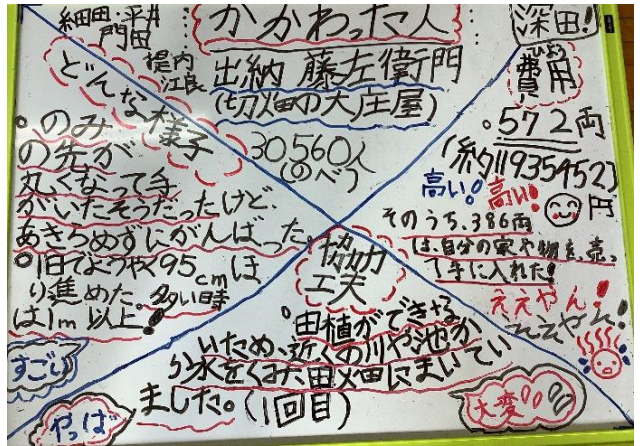 細田・平井
門田
堤内
江良
かかわった人
出納 藤左衛門
(切畑の大庄屋)
30,560人
(のべ)
深田!
ひよう
費用
572両
(約11935452)
円
高い!
高い!
そのうち、386両
は、自分の家や畑を、売っ
て手に入れた!
ええやん!
ええやん!
どんな
様子
のみ
の先が
丸くなって手
がいたそうだったけど、
あきらめずにがんばった。
1日でようやく95cmほ
り進めた。多い時
は1m以上!
すごい
やっば
協力
工夫
田植ができな
いため、近くの川や池か
ら水をくみ、田畑にまいてい
ました。(1回目)
大変